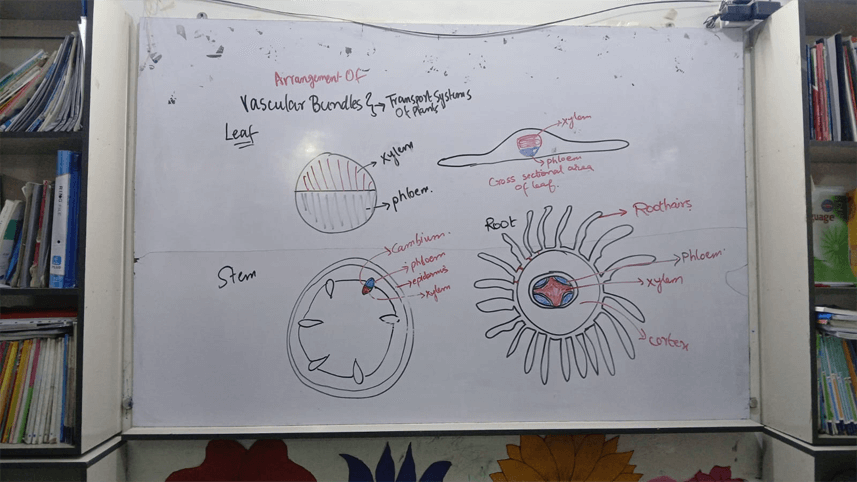 Arrangement Of
Vascular Bundles → Transport Systems
Of Plants
Leaf
xylem
phloem.
xylem
phloem
Cross sectional area
of leaf.
Stem
Cambium.
phloem
epidermis
xylem
Root
Roothairs
Phloem.
xylem
cortex